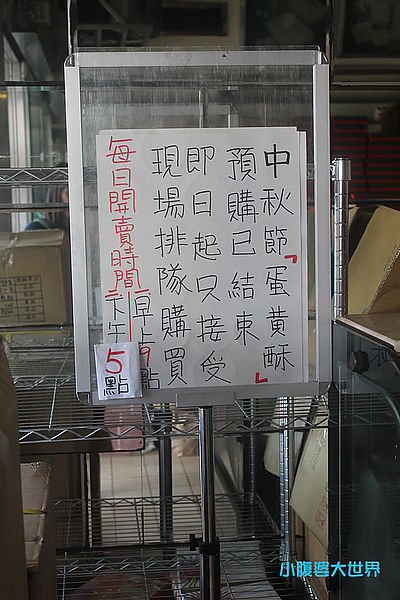 中秋節『蛋黃酥』
預購已結束
即日起只接受
現場排隊購買
每日開賣時間
早上9點
下午5點
小腹婆大世界